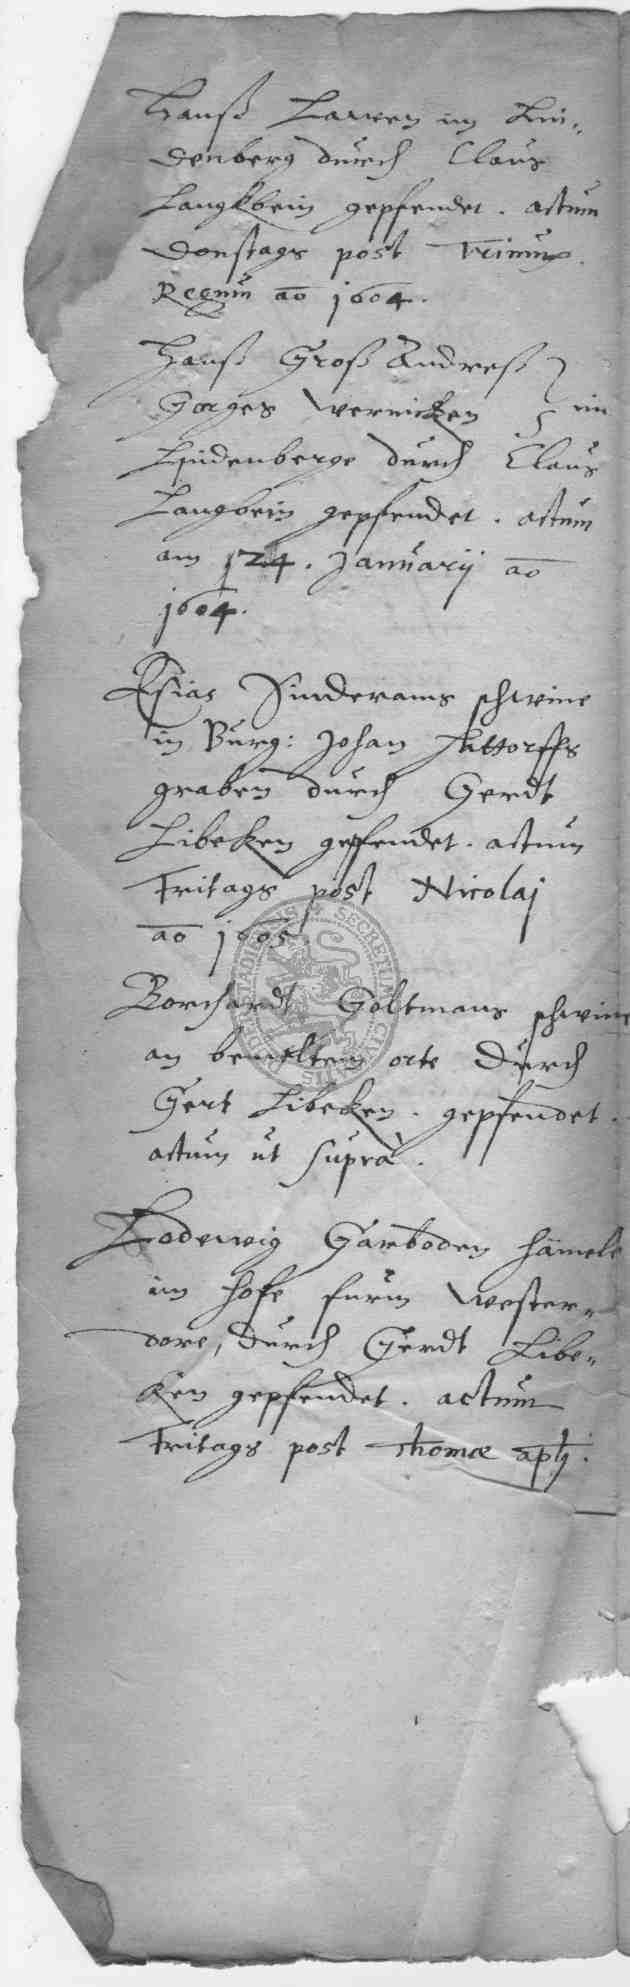 Hanß Lauen im Lin-
denberg durch Claus
Langkbein gepfendet. actum
Donstags post Trium
Regum ao 1604.
Hanß Groß Andreß
Gorges Wernicken } im
Lindenberge durch Claus
Langbein gepfendet. actum
am 24. Januarij ao
1604.
Esias Sinderams schwine
in Burg: Johan
graben durch Gerdt
Libeken gepfendet. actum
Fritags post Nicolaj
ao 1605
Borchardt Goltmans schwine
an bemeltem orte durch
Gert Libeken. gepfendet.
actum ut supra.
Lodewig Garboden hämele
im hofe furm Wester-
dore, durch Gerdt Libe-
ken gepfendet. actum
Fritags post Thomæ aplj.
SECRETUM CIVI